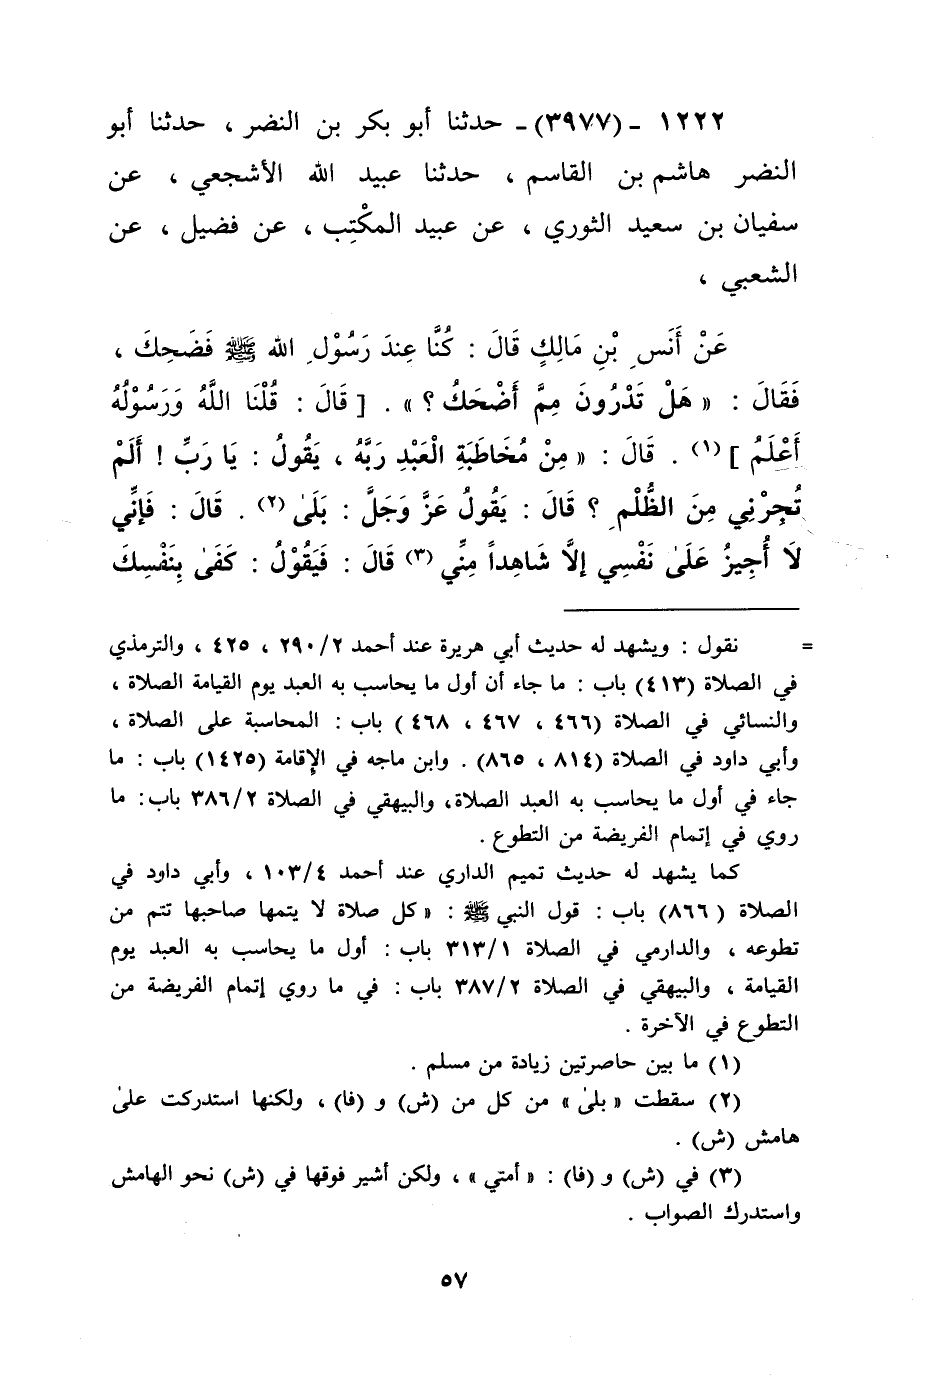 ١٢٢٢ ـ (٣٩٧٧) ـ حدثنا أبو بكر بن النضر ، حدثنا أبو
النضر هاشم بن القاسم ، حدثنا عبيد الله الأشجعي ، عن
سفيان بن سعيد الثوري ، عن عبيد المكْتِب ، عن فضيل ، عن
الشعبي ،
عَنْ أَنَسِ بْنِ مَالِكٍ قَالَ : كُنَّا عِندَ رَسُوْلِ الله ﷺ فَضَحِكَ ،
فَقَالَ : « هَلْ تَدْرُونَ مِمَّ أَضْحَكُ ؟ » . [ قَالَ : قُلْنَا اللَّهُ وَرَسُوْلُهُ
أَعْلَمُ ] (١) . قَالَ : « مِنْ مُخَاطَبَةِ الْعَبْدِ رَبَّهُ ، يَقُولُ : يَا رَبِّ ! أَلَمْ
تُجِرْنِي مِنَ الظُّلْمِ ؟ قَالَ : يَقُولُ عَزَّ وَجَلَّ : بَلَىٰ (٢) . قَالَ : فَإِنِّي
لَا أُجِيزُ عَلَىٰ نَفْسِي إلاَّ شَاهِداً مِنِّي (٣) قَالَ : فَيَقُوْلُ : كَفَىٰ بِنَفْسِكَ
= نقول : ويشهد له حديث أبي هريرة عند أحمد ٢/ ٢٩٠ ، ٤٢٥ ، والترمذي
في الصلاة (٤١٣) باب : ما جاء أن أول ما يحاسب به العبد يوم القيامة الصلاة ،
والنسائي في الصلاة (٤٦٦ ، ٤٦٧ ، ٤٦٨ ) باب : المحاسبة على الصلاة ،
وأبي داود في الصلاة (٨١٤ ، ٨٦٥) . وابن ماجه في الإقامة (١٤٢٥) باب : ما
جاء في أول ما يحاسب به العبد الصلاة، والبيهقي في الصلاة ٢/ ٣٨٦ باب: ما
روي في إتمام الفريضة من التطوع .
كما يشهد له حديث تميم الداري عند أحمد ٤/ ١٠٣ ، وأبي داود في
الصلاة ( ٨٦٦) باب : قول النبي ﷺ : « كل صلاة لا يتمها صاحبها تتم من
تطوعه ، والدارمي في الصلاة ١/ ٣١٣ باب : أول ما يحاسب به العبد يوم
القيامة ، والبيهقي في الصلاة ٢/ ٣٨٧ باب : في ما روي إتمام الفريضة من
التطوع في الآخرة .
(١) ما بين حاصرتين زيادة من مسلم .
(٢) سقطت « بلىٰ » من كل من (ش) و (فا) ، ولكنها استدركت علىٰ
هامش (ش) .
(٣) في (ش) و (فا) : « أمتي » ، ولكن أشير فوقها في (ش) نحو الهامش
واستدرك الصواب .
٥٧